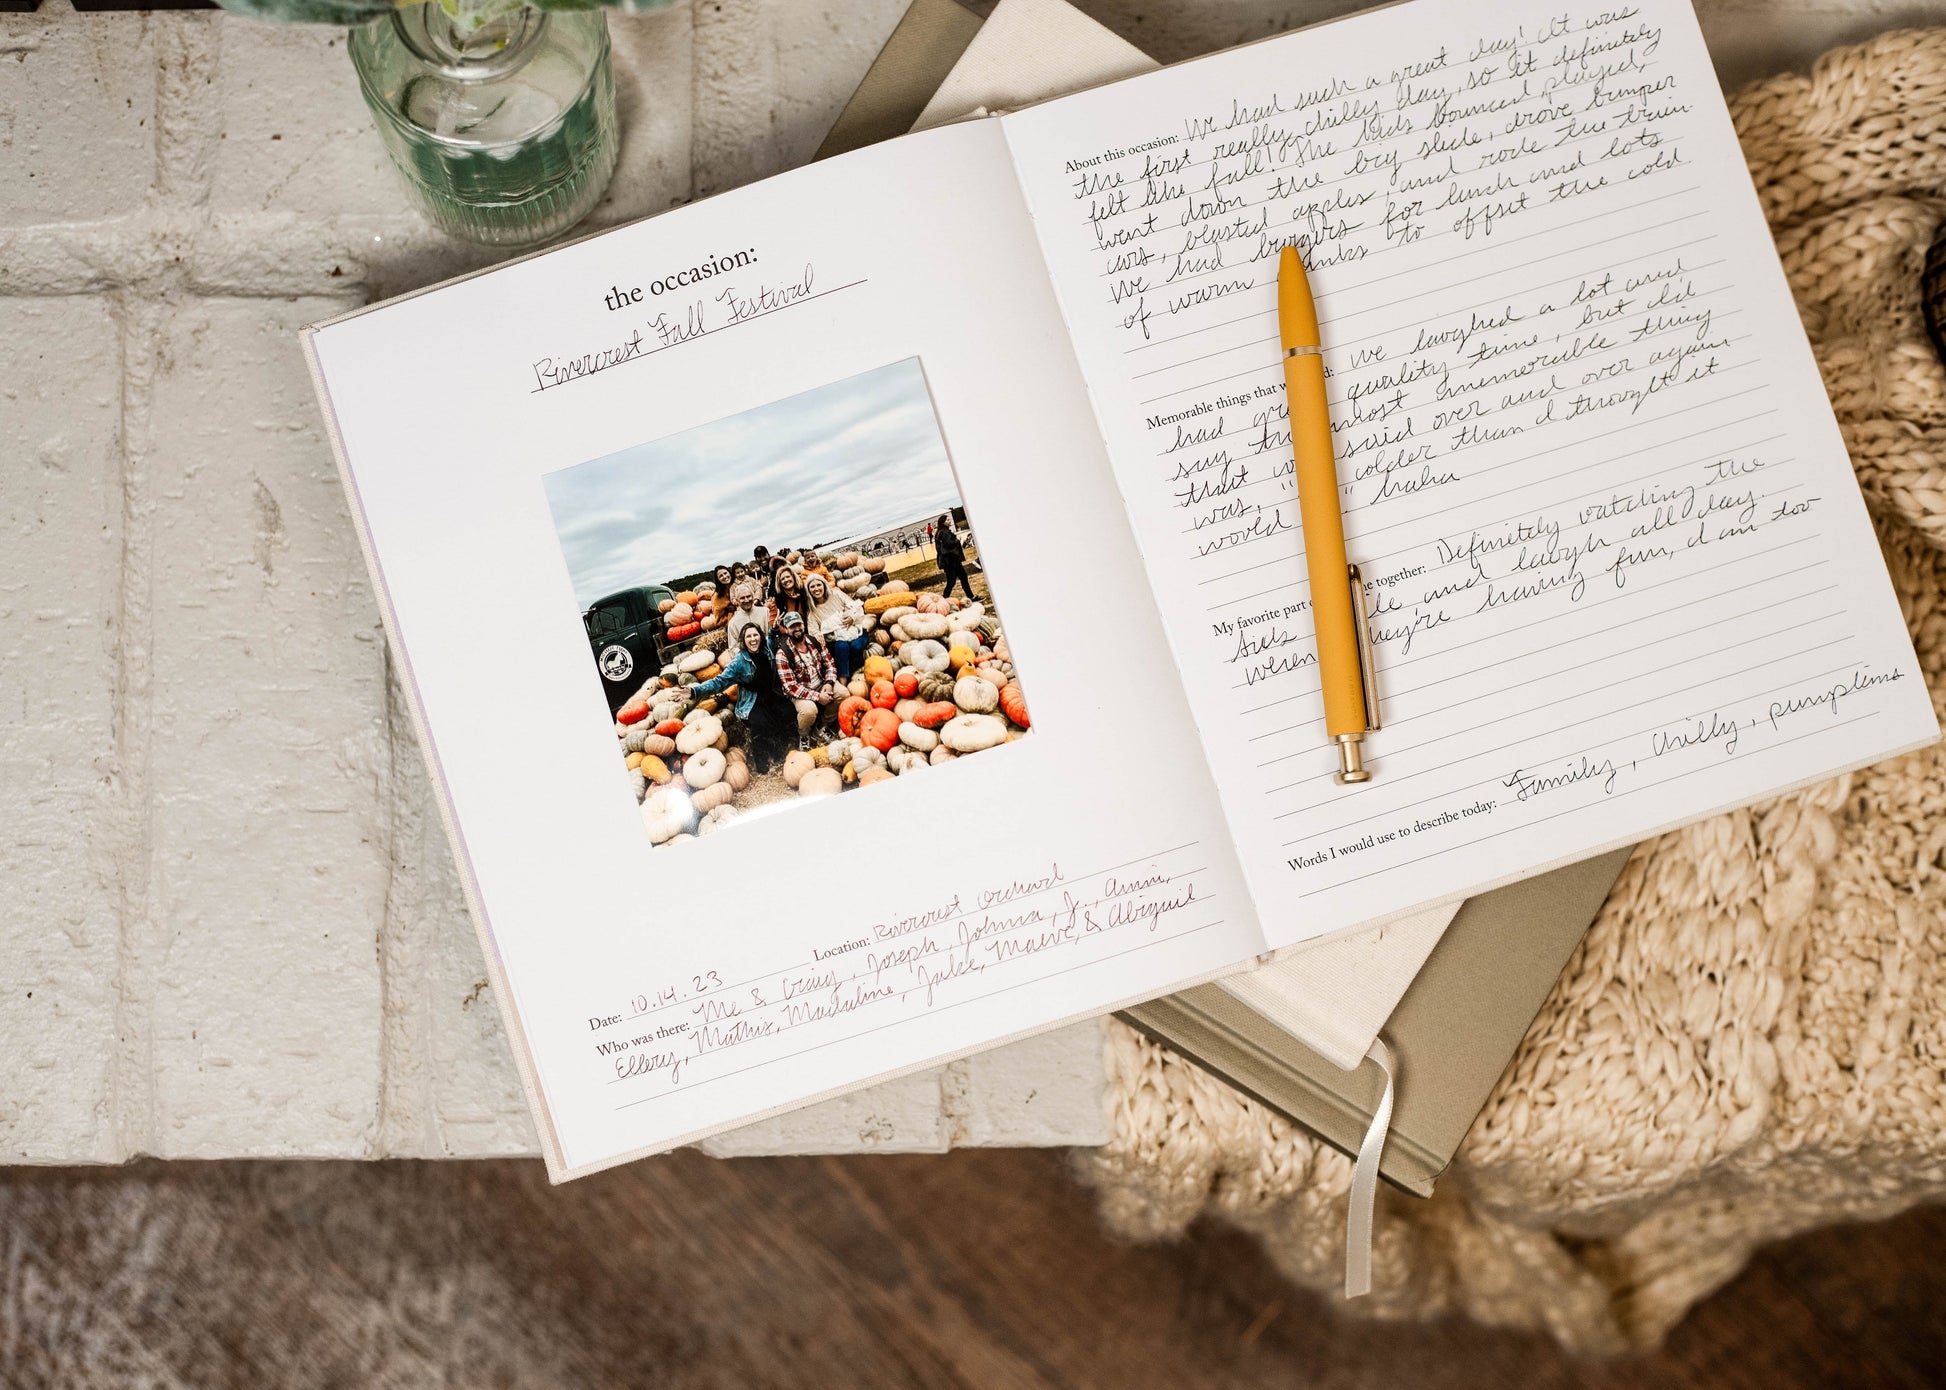 the occasion:
Rivercrest Fall Festival
Date: 10.14.23 Location: Rivercrest Orchard
Who was there: Me & Craig, Joseph, Johnna, Jr., Anni,
Ellery, Mathis, Madaline, Jake, Maeve, & Abigail
About this occasion: We had such a great day! It was
the first really chilly day, so it definitely
felt like fall! The kids bounced, played,
went down the big slide, drove bumper
cars, blasted apples, and rode the train.
We had burgers for lunch and lots
of warm to offset the cold
Memorable things that we laughed a lot and
had quality time, but I'd
say most memorable thing
that said over and over again
was, " colder than I thought it
would ." haha
My favorite part together: Definitely watching the
kids and laugh all day.
When they're having fun, I am too
Words I would use to describe today: Family, chilly, pumpkins